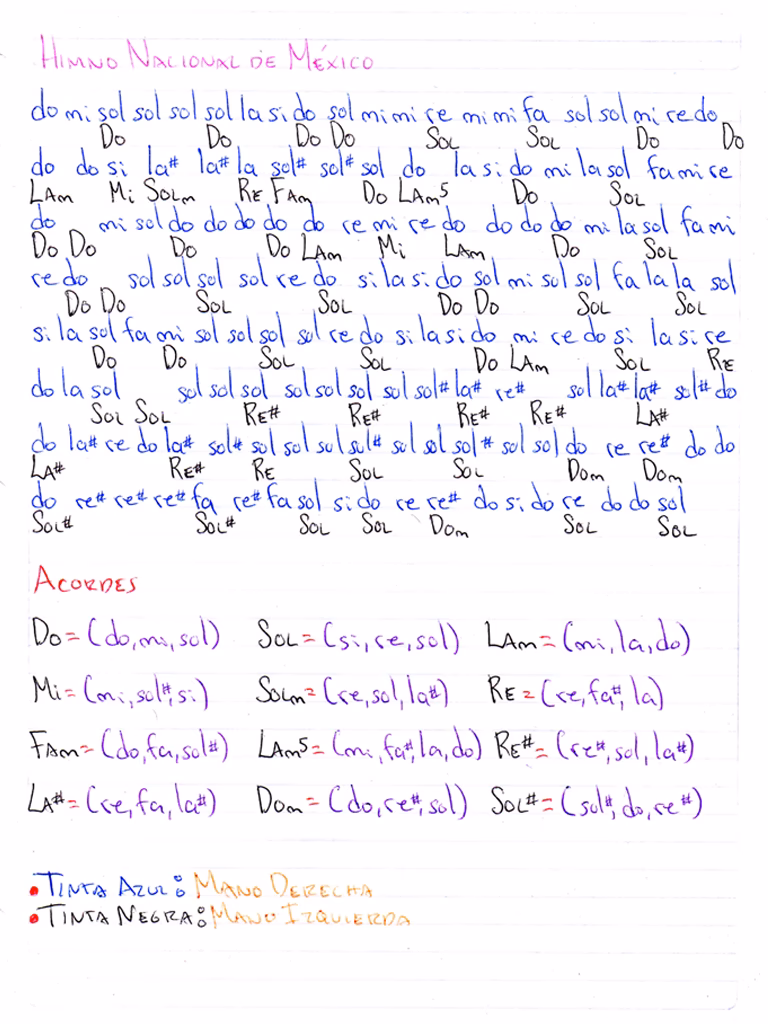 HIMNO NACIONAL DE MÉXICO
do mi sol sol sol sol la si do sol mi mi re mi mi fa sol sol mi re do
DO DO DO DO SOL SOL DO DO
do do si la# la# la sol# sol# sol do la si do mi la sol fa mi re
LAm MI SOLm RE FAm DO LAm5 DO SOL
do mi sol do do do do do re mi re do do do do mi la sol fa mi
DO DO DO DO LAm MI LAm DO SOL
re do sol sol sol sol re do si la si do sol mi sol sol fa la la sol
DO DO SOL SOL DO DO SOL SOL
si la sol fa mi sol sol sol sol re do si la si do mi re do si la si re
DO DO SOL SOL DO LAm SOL RE
do la sol sol sol sol sol sol sol sol sol# la# re# sol la# la# sol# do
SOL SOL RE# RE# RE# RE# LA#
do la# re do la# sol# sol sol sol sol# sol sol sol# sol sol do re re# do do
LA# RE# RE SOL SOL DOm DOm
do re# re# re# fa re# fa sol si do re re# do si do re do do sol
SOL# SOL# SOL SOL DOm SOL SOL
ACORDES
DO = (do, mi, sol) SOL = (si, re, sol) LAm = (mi, la, do)
MI = (mi, sol#, si) SOLm = (re, sol, la#) RE = (re, fa#, la)
FAm = (do, fa, sol#) LAm5 = (mi, fa#, la, do) RE# = (re#, sol, la#)
LA# = (re, fa, la#) DOm = (do, re#, sol) SOL# = (sol#, do, re#)
• TINTA AZUL: MANO DERECHA
• TINTA NEGRA: MANO IZQUIERDA